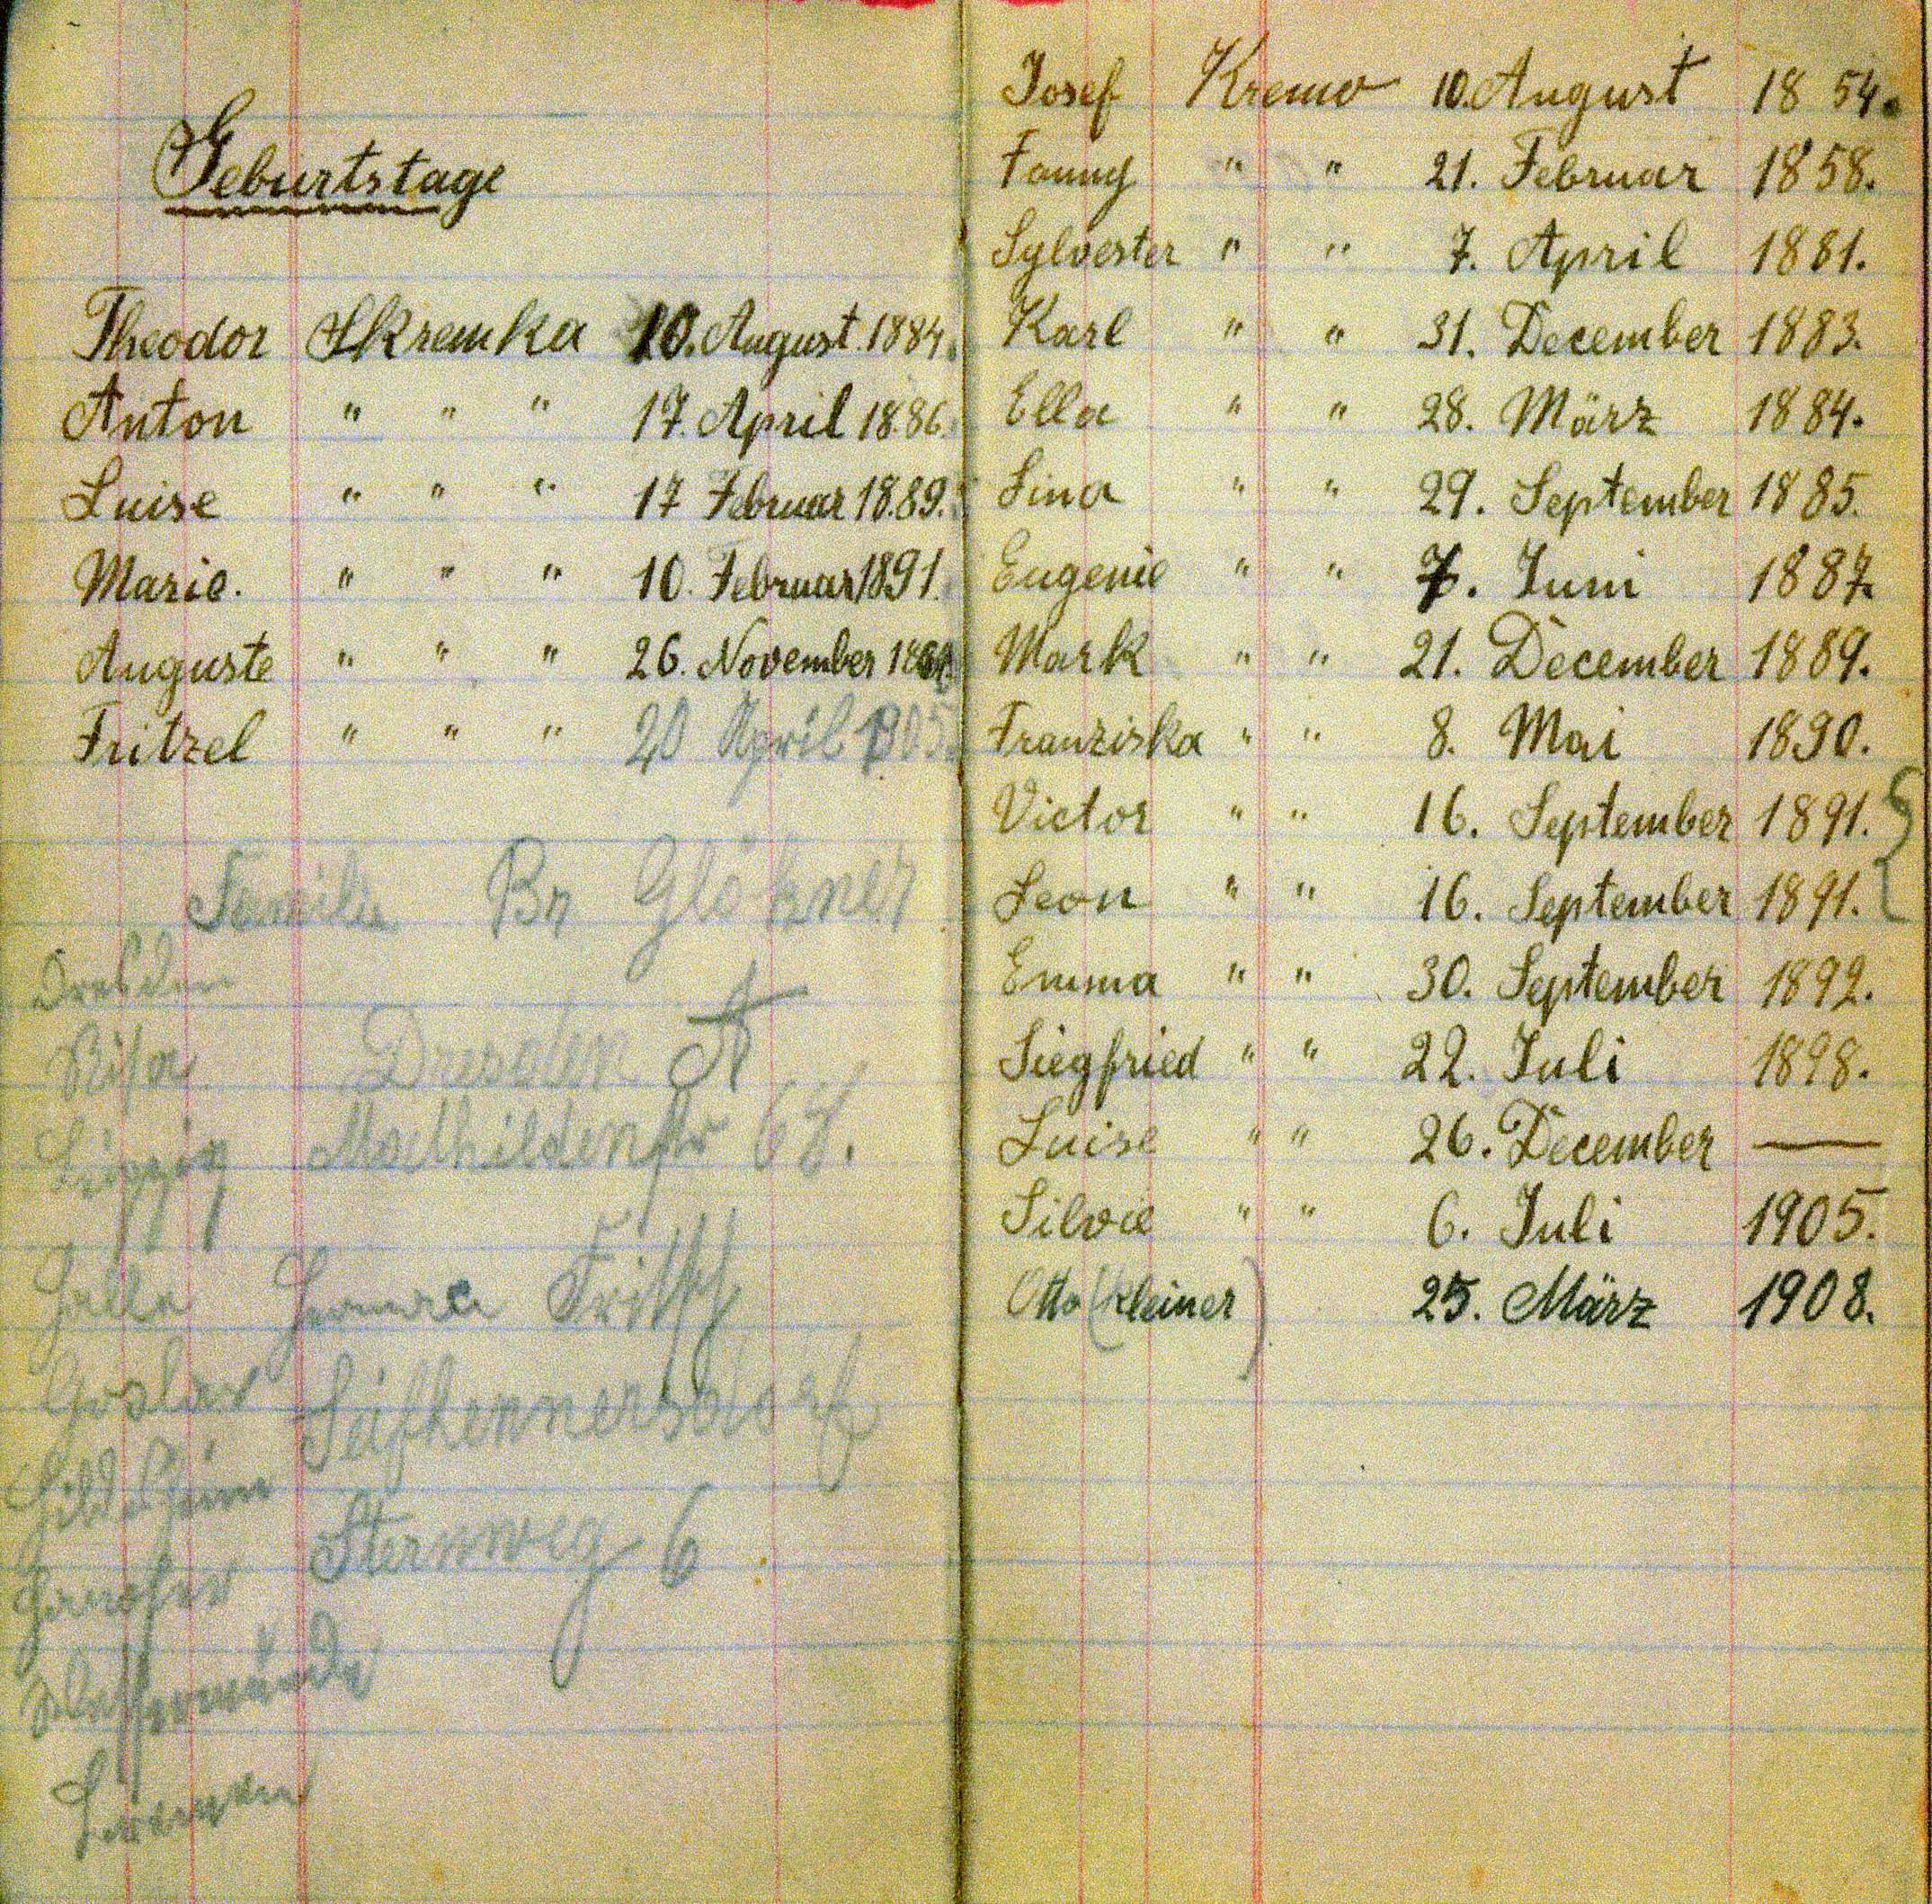 Geburtstage
Theodor Skremka 10. August. 1884.
Anton " " " 17. April 1886.
Luise " " " 17 Februar 1889.
Marie. " " " 10. Februar 1891.
Auguste " " " 26. November
Fritzel " " " 20 April 1905.
Familie Br Glökner
Dresden
Risa Dresden A
Leipzig Mathildenstr
Halle Fritsch
Goslar Seifhennersdorf
Hildesheim
Hanofer Sternweg 6
Josef Kremo 10. August 1854.
Fanny " " 21. Februar 1858.
Sylvester " " 7. April 1881.
Karl " " 31. December 1883.
Ella " " 28. März 1884.
Lina " " 29. September 1885.
Eugenie " " 7. Juni 1887.
Mark " " 21. December 1889.
Franziska " " 8. Mai 1890.
Victor " " 16. September 1891.
Leon " " 16. September 1891.
Emma " " 30. September 1892.
Siegfried " " 22. Juli 1898.
Luise " " 26. December —
Silvie " " 6. Juli 1905.
Otto (kleiner) 25. März 1908.